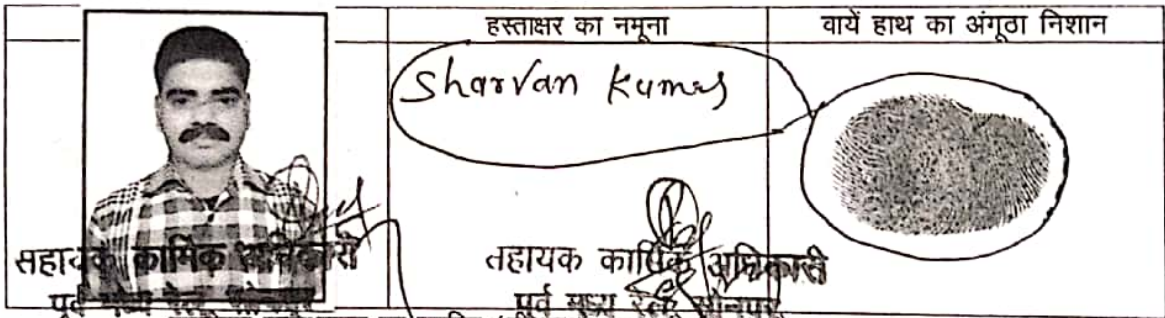 हस्ताक्षर का नमूना
वायें हाथ का अंगूठा निशान
Sharvan Kumar
सहायक कार्मिक अधिकारी
पूर्व मध्य रेल, सोनपुर
तहायक कार्मिक अधिकारी
पूर्व मध्य रेल, सोनपुर